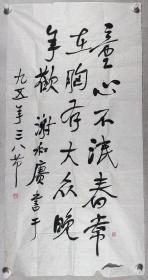 童心不泯春常
在胸有大众晚
年歡 谢和赓書于
九五年三八节